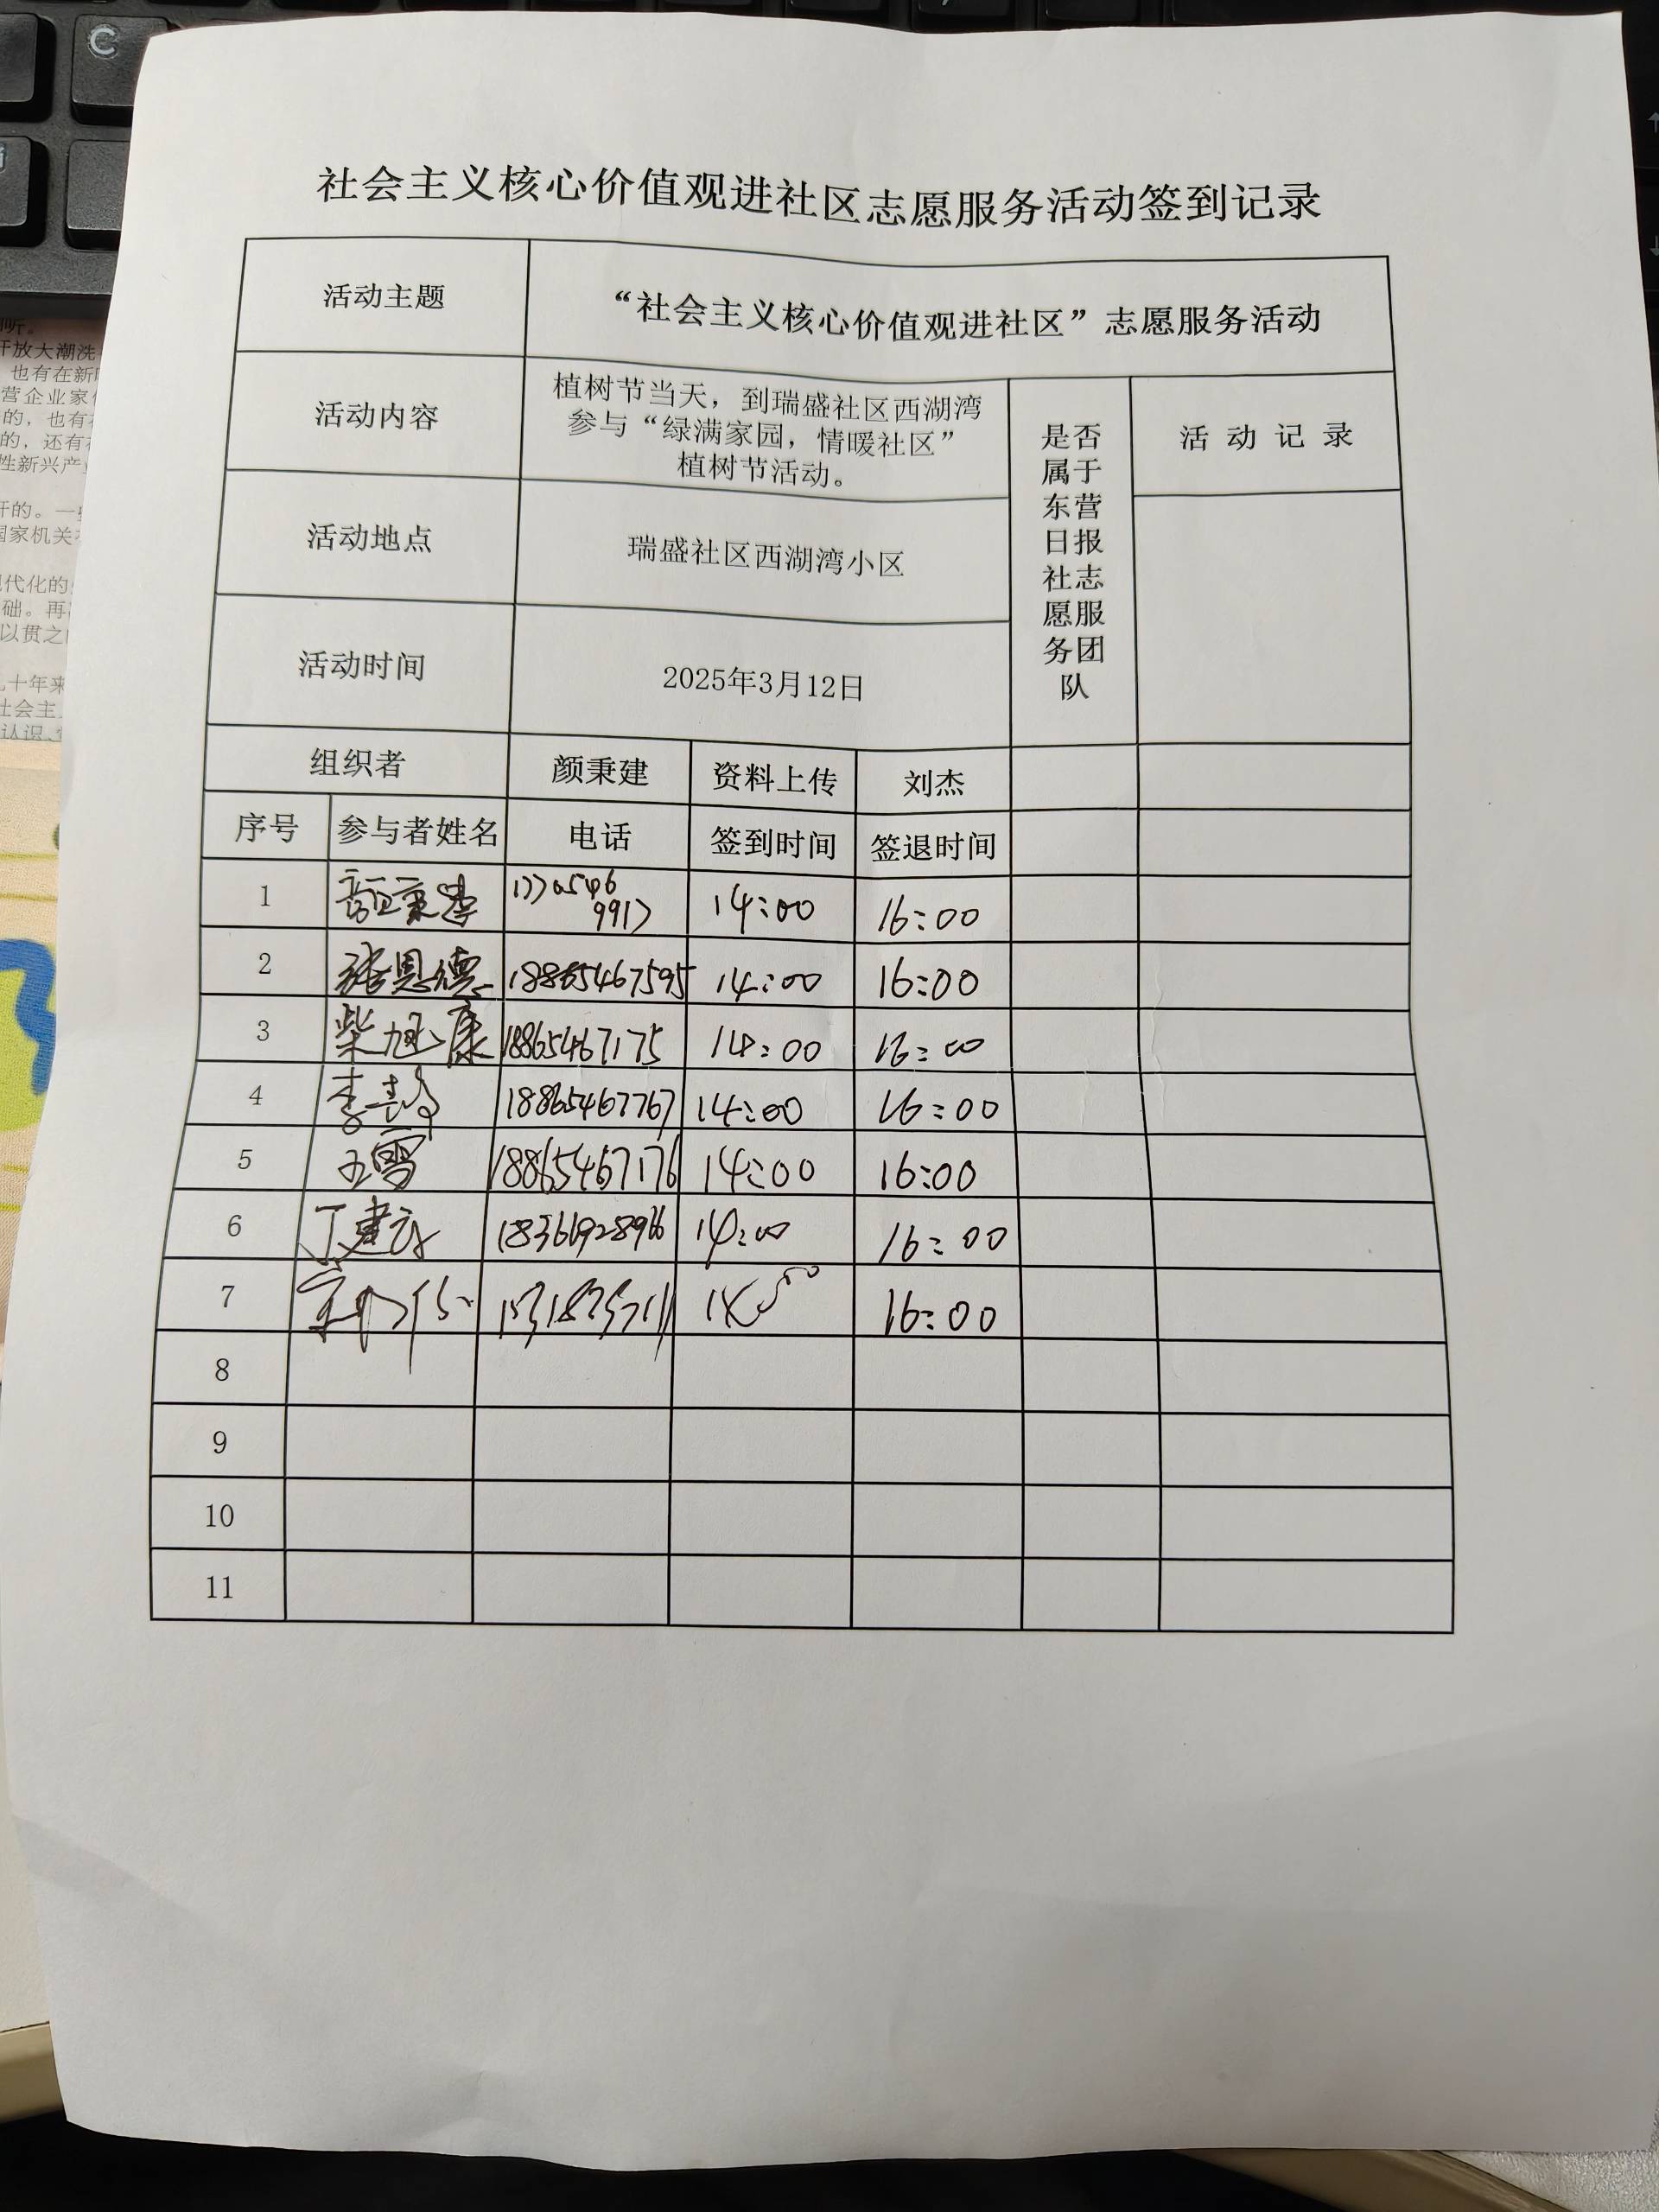 C
社会主义核心价值观进社区志愿服务活动签到记录
活动主题 “社会主义核心价值观进社区”志愿服务活动
活动内容 植树节当天，到瑞盛社区西湖湾
参与“绿满家园，情暖社区”
植树节活动。
是否
属于
东营
日报
社志
愿服
务团
队
活动记录
活动地点 瑞盛社区西湖湾小区
活动时间 2025年3月12日
组织者 颜秉建 资料上传 刘杰
序号 参与者姓名 电话 签到时间 签退时间
1 颜秉建 17705469917 14:00 16:00
2 张恩德 18865467595 14:00 16:00
3 柴旭康 18865467175 14:00 16:00
4 18865467767 14:00 16:00
5 王雪 18865467176 14:00 16:00
6 丁建 14:00 16:00
7 16:00
8
9
10
11
开放大潮洗
也有在新
营企业家
的，也有
的，还有
性新兴产
开的。一
国家机关
现代化的
础。再
以贯之
十年来
社会主
认识、